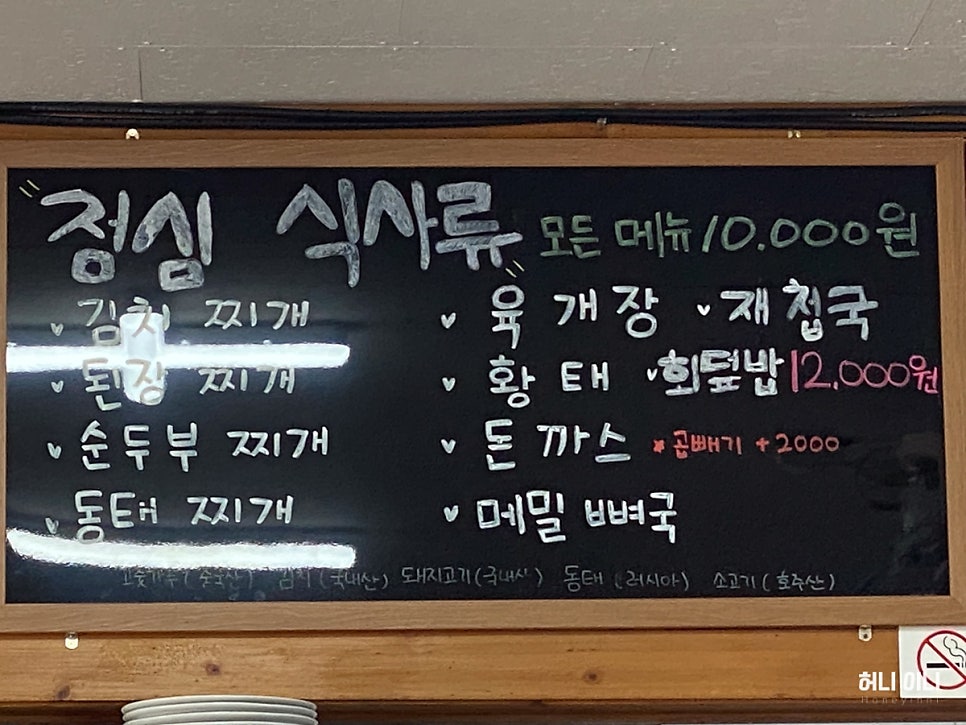 "점심 식사류" 모든 메뉴 10.000원
김치 찌개
된장 찌개
순두부 찌개
동태 찌개
육개장 재첩국
황태 회덮밥 12.000원
돈까스 *곱빼기 +2000
메밀 뼈국
고춧가루(중국산) 김치(국내산) 돼지고기(국내산) 동태(러시아) 소고기(호주산)
허니 이니
Honeyinni